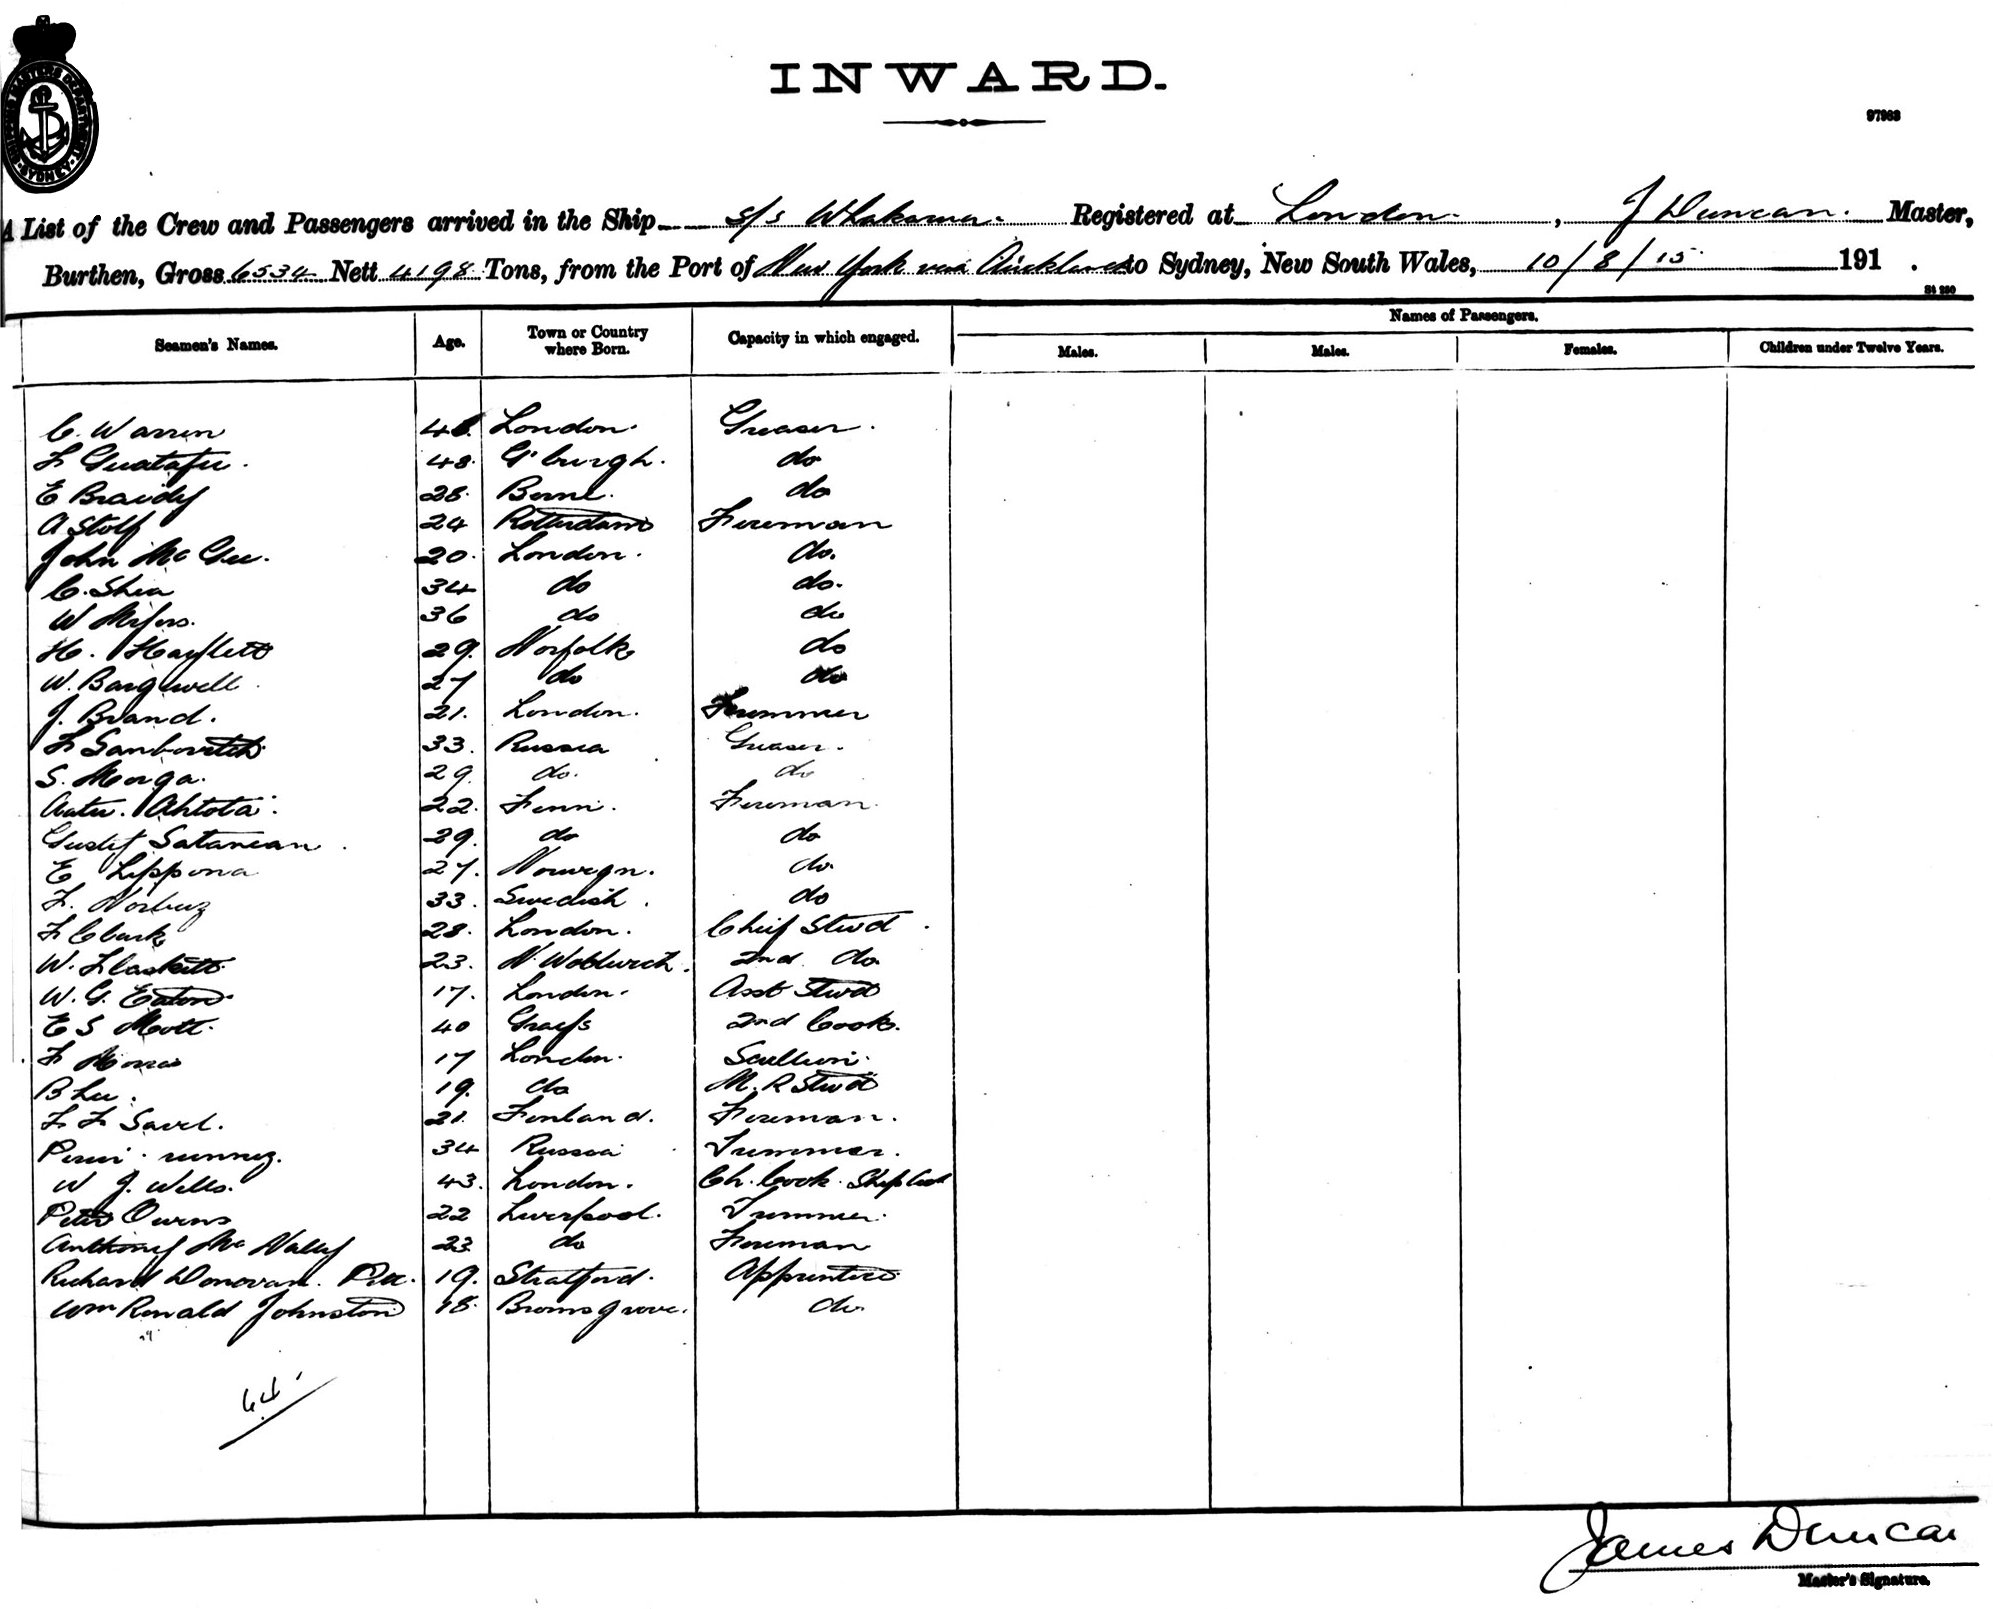 SHIPPING MASTERS DEPARTMENT SYDNEY
INWARD.
97963
A List of the Crew and Passengers arrived in the Ship s/s Whakarua. Registered at London. , J Duncan. Master,
Burthen, Gross 6534 Nett 4198 Tons, from the Port of New York via Auckland to Sydney, New South Wales, 10/8/15 191 .
St 290
Seamen's Names. Age. Town or Country where Born. Capacity in which engaged. Names of Passengers.
Males. Males. Females. Children under Twelve Years.
C. Warren London. Greaser.
F 48. G'burgh. do
E Braidy 28. Berne. do
A Stolf 24 Rotterdam Fireman
John McGee. 20. London. do.
C. Shea 34 do do.
W 36 do do
H. Hayllett 29. Norfolk do
W. Bargewell 27 do do
J. Brand. 21. London. Trimmer
F Sanbovitch 33. Russia Greaser.
S. Morga. 29. do. do
Ahtota. 22. Finn. Fireman.
Gustif Satanean 29. do do
E Lippona 27. Norwegn. do.
F. 33. Swedish. do
F Clark 28. London. Chief Stwd
W. Flaskett 23. N. Woolwich. 2nd do
W. G. Eaton. 17. London. Asst Stwd
E S Mott. 40 Grays 2nd Cook.
F 17 London. Scullion.
B Lee. 19. do M. R Stwd
F F Savel. 21. Finland. Fireman.
34 Russia Trimmer.
W J. Wells. 43. London. Ch. Cook. Ships Cook
Peter Owens 22 Liverpool. Trimmer.
Anthony McNally 23 do Fireman
Richard Donovan 19. Stratford. Apprentice
Wm Ronald Johnston 18. Bromsgrove. do.
James Duncan
Master's Signature.